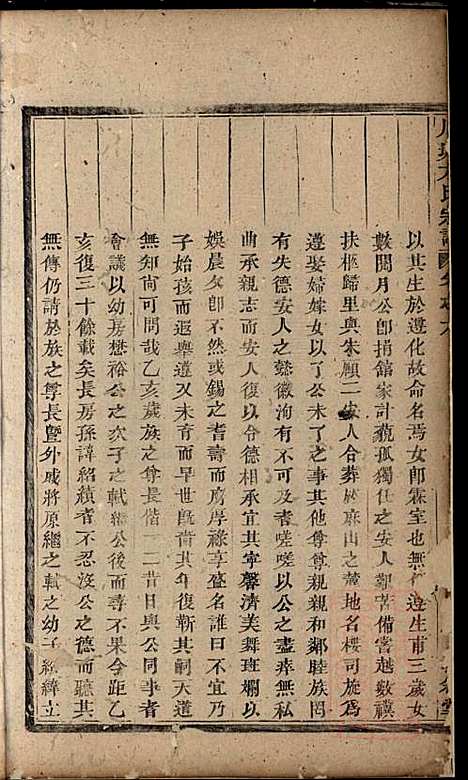 以其生於遵化故命名焉女郎霖室也無何遵生甫三歲女
數閱月公卽捐館家計藐孤獨仕之安人艱苦備嘗越數禩
扶柩歸里與朱顧二安人合葬於麻山之麓地名樓司旋爲
遵娶婦嫁女以了公未了之事其他尊尊親親和鄰睦族罔
有失德安人之懿徽洵有不可及者嗟嗟以公之盡瘁無私
曲承親志而安人復以令德相承宜其寧馨濟美舞班斕以
娛晨夕卽不然或錫之耆壽而膺厚祿享盛名誰曰不宜乃
子始孩而遐舉遵又未育而早世旣嗇其年復靳其嗣天道
無知尙可問哉乙亥歲族之尊長偕一二昔日與公同事者
會議以幼房懋裕公之次子之軾繼公後而尋不果今距乙
亥復三十餘載矣長房孫諱紹績者不忍沒公之德而聽其
無傳仍請於族之尊長曁外戚將原繼之軾之幼子經緯立
氏宗譜